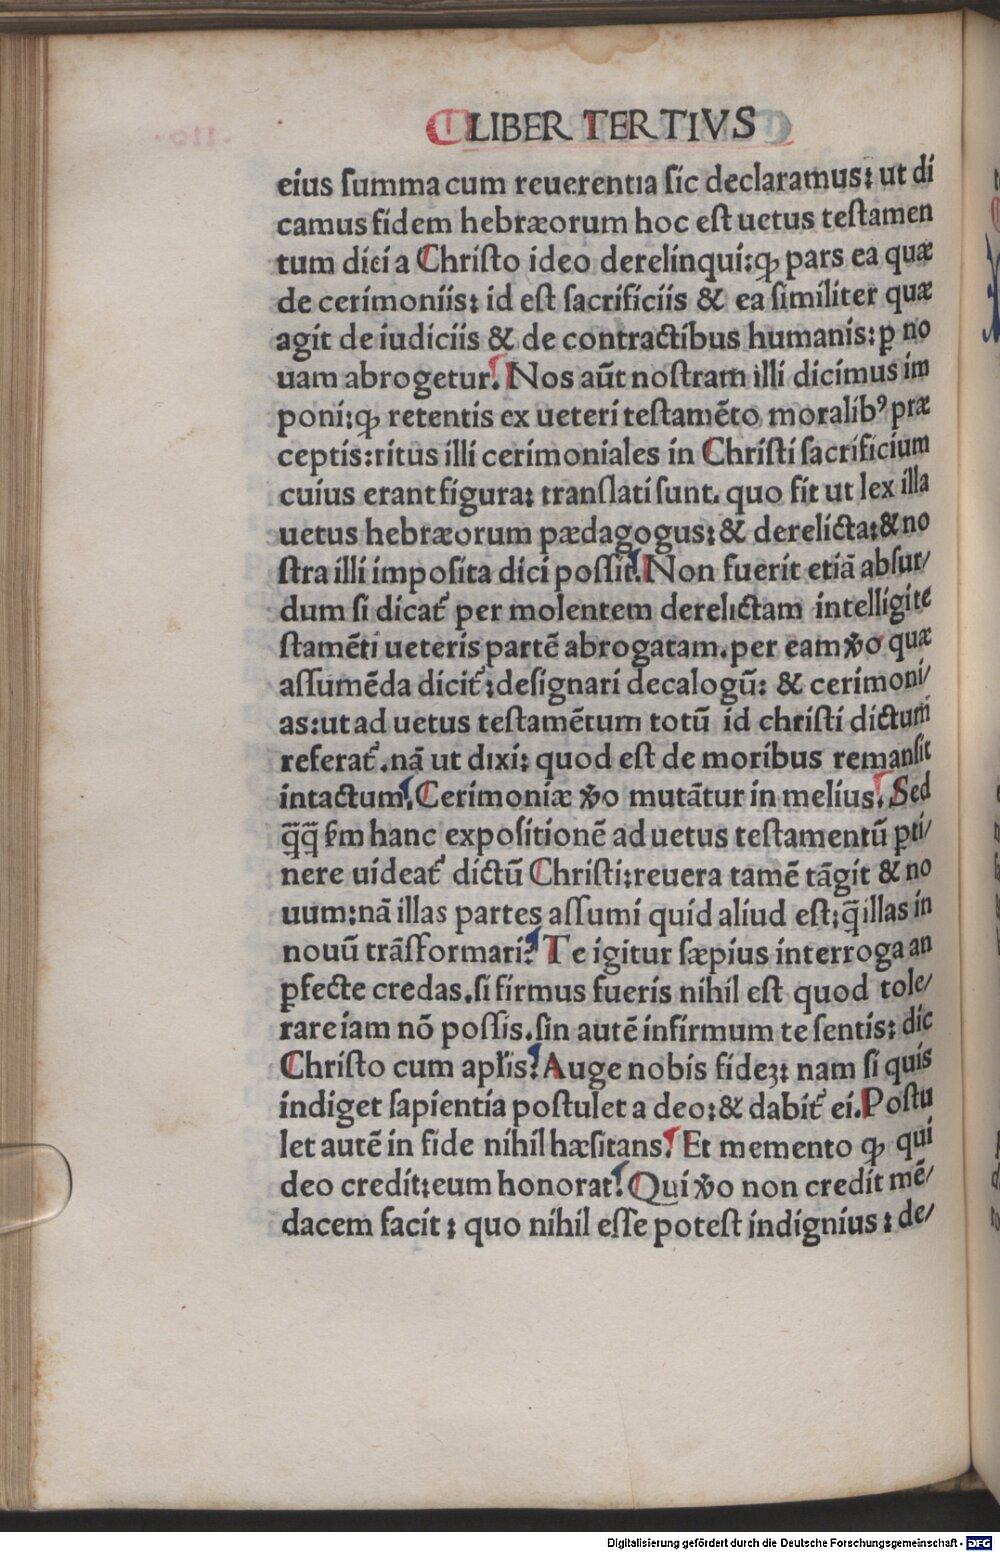 LIBER TERTIVS
eius ſumma cum reuerentia ſic declaramus: ut di
camus fidem hebræorum hoc eſt uetus teſtamen
tum dici a Chriſto ideo derelinqui:ꝙ pars ea quæ
de cerimoniis: id eſt ſacrificiis & ea ſimiliter quæ
agit de iudiciis & de contractibus humanis: ꝑ no
uam abrogetur. Nos aūt noſtram illi dicimus im
poni:ꝙ retentis ex ueteri teſtamēto moralibꝰ præ
ceptis:ritus illi cerimoniales in Chriſti ſacrificium
cuius erant figura: tranſlati ſunt. quo fit ut lex illa
uetus hebræorum pædagogus: & derelicta:& no
ſtra illi impoſita dici poſſit. Non fuerit etiā abſur/
dum ſi dicat᷑ per molentem derelictam intelligi te
ſtamēti ueteris partē abrogatam. per eam ꝟo quæ
aſſumēda dicit᷑:deſignari decalogū: & cerimoni/
as:ut ad uetus teſtamētum totū id chriſti dictum
referat᷑. nā ut dixi: quod eſt de moribus remanſit
intactum. Cerimoniæ ꝟo mutātur in melius. Sed
q̄q̄ ẜm hanc expoſitionē ad uetus teſtamentū ꝑti/
nere uideat᷑ dictū Chriſti:reuera tamē tāgit & no
uum:nā illas partes aſſumi quid aliud eſt:q̄ illas in
nouū trāſformari? Te igitur ſæpius interroga an
ꝑfecte credas. ſi firmus fueris nihil eſt quod tole/
rare iam nō poſſis. ſin autē infirmum te ſentis: dic
Chriſto cum apl̄is? Auge nobis fideꝫ: nam ſi quis
indiget ſapientia poſtulet a deo:& dabit᷑ ei. Poſtu
let autē in fide nihil hæſitans. Et memento ꝙ qui
deo credit:eum honorat. Qui ꝟo non credit mē/
dacem facit : quo nihil eſſe poteſt indignius : de/
Digitalisierung gefördert durch die Deutsche Forschungsgemeinschaft - DFG